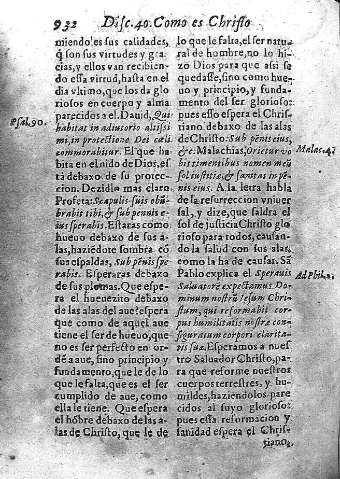 932 Disc. 40. Como es Christo
miendo es sus calidades,
q̃ son sus virtudes y gra
cias, y ellos van recibien
do essa virtud, hasta en el
dia vltimo, que los da glo
riosos en cuerpo y alma
parecidos a el. Dauid, Qui
habitat in adiutorio altissi
mi, in protectione Dei cæli
commorabitur. El que ha
bita en el nido de Dios, es
tá debaxo de su protec-
cion. Dezidlo mas claro
Profeta: Scapulis suis obũ
brabit tibi, & sub pennis e
ius sperabis. Estaras como
hueuo debaxo de sus a
las, haziẽdote sombra cõ
sus espaldas, Sub pẽnis spe
rabis. Esperaras debaxo
de sus plumas. Que espe-
ra el hueuezito debaxo
de las alas del aue? espera
que como de aquel aue
tiene el ser de hueuo, que
no es ser perfecto en or-
dẽ a aue, sino principio y
fundamento, que le de lo
que le falta, que es el ser
cumplido de aue, como
ella le tiene. Que espera
el hõbre debaxo de las a
las de Christo, que le de
Psal. 90.
lo que le falta, el ser natu
ral de hombre, no lo hi-
zo Dios para que assi se
quedasse, sino como hue-
uo y principio, y funda-
mento del ser glorioso:
pues esso espera el Chris
tiano debaxo de las alas
de Christo: Sub pẽnis eius,
&c. Malachias, Orietur vo
bis timentibus nomen meũ
sol iustitiæ, & sanitas in pẽ-
nis eius. A la letra habla
de la resurreccion vniuer
sal, y dize, que saldra el
sol de justicia Christo glo
rioso para todos, causan-
do la salud con sus alas,
como la ha de causar. Sã
Pablo explica el Sperauis
Saluatorẽ expectamus Do-
minum nostrũ Iesum Chris
tum, qui reformabit cor-
pus humilitatis nostræ con
figuratum corpori clarita-
tis suæ. Esperamos a nues-
tro Saluador Christo, pa-
ra que reforme nuestros
cuerpos terrestres, y hu-
mildes, haziendolos pare
cidos al suyo glorioso:
pues essa reformacion y
sanidad espera el Chris-
tiano,
Malac. 4.
Ad Phil. 3.